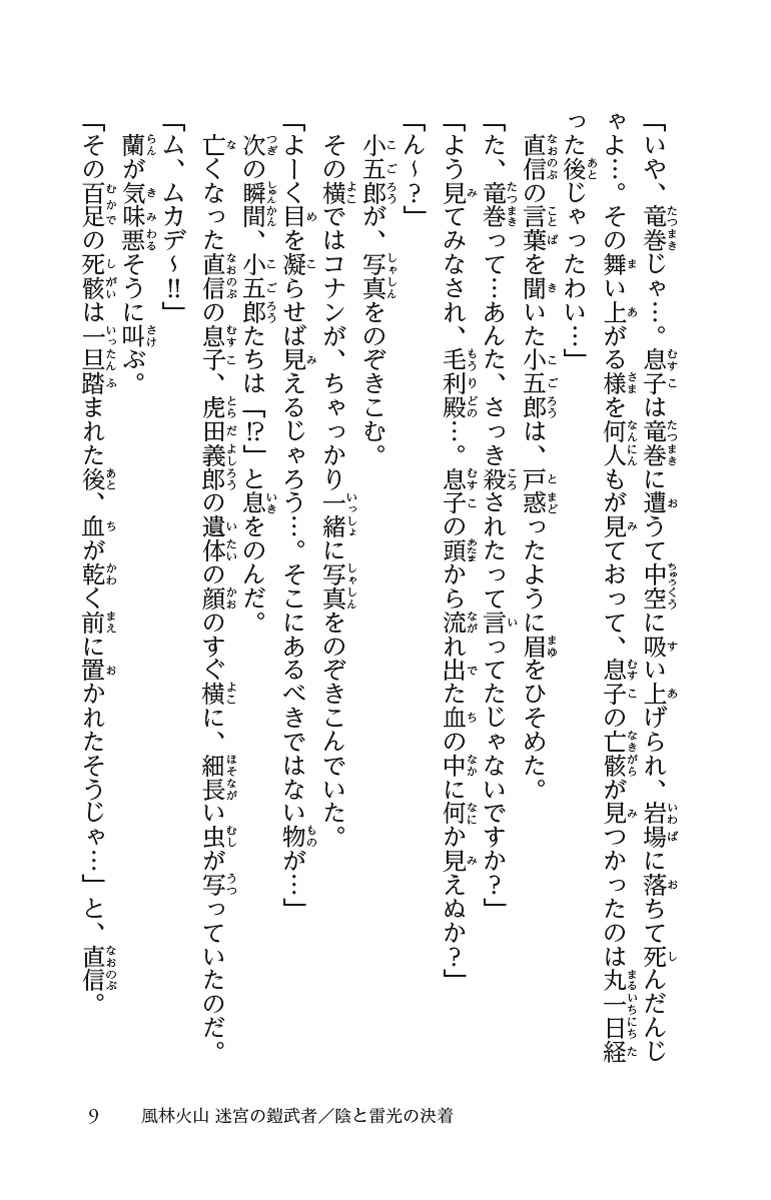 「いや、竜巻じゃ…。息子は竜巻に遭うて中空に吸い上げられ、岩場に落ちて死んだんじ
ゃよ…。その舞い上がる様を何人もが見ておって、息子の亡骸が見つかったのは丸一日経
った後じゃったわい…」
直信の言葉を聞いた小五郎は、戸惑ったように眉をひそめた。
「た、竜巻って…あんた、さっき殺されたって言ってたじゃないですか？」
「よう見てみなされ、毛利殿…。息子の頭から流れ出た血の中に何か見えぬか？」
「ん～？」
小五郎が、写真をのぞきこむ。
その横ではコナンが、ちゃっかり一緒に写真をのぞきこんでいた。
「よーく目を凝らせば見えるじゃろう…。そこにあるべきではない物が…」
次の瞬間、小五郎たちは「!?」と息をのんだ。
亡くなった直信の息子、虎田義郎の遺体の顔のすぐ横に、細長い虫が写っていたのだ。
「ム、ムカデ～!!」
蘭が気味悪そうに叫ぶ。
「その百足の死骸は一旦踏まれた後、血が乾く前に置かれたそうじゃ…」と、直信。
9 風林火山 迷宮の鎧武者／陰と雷光の決着